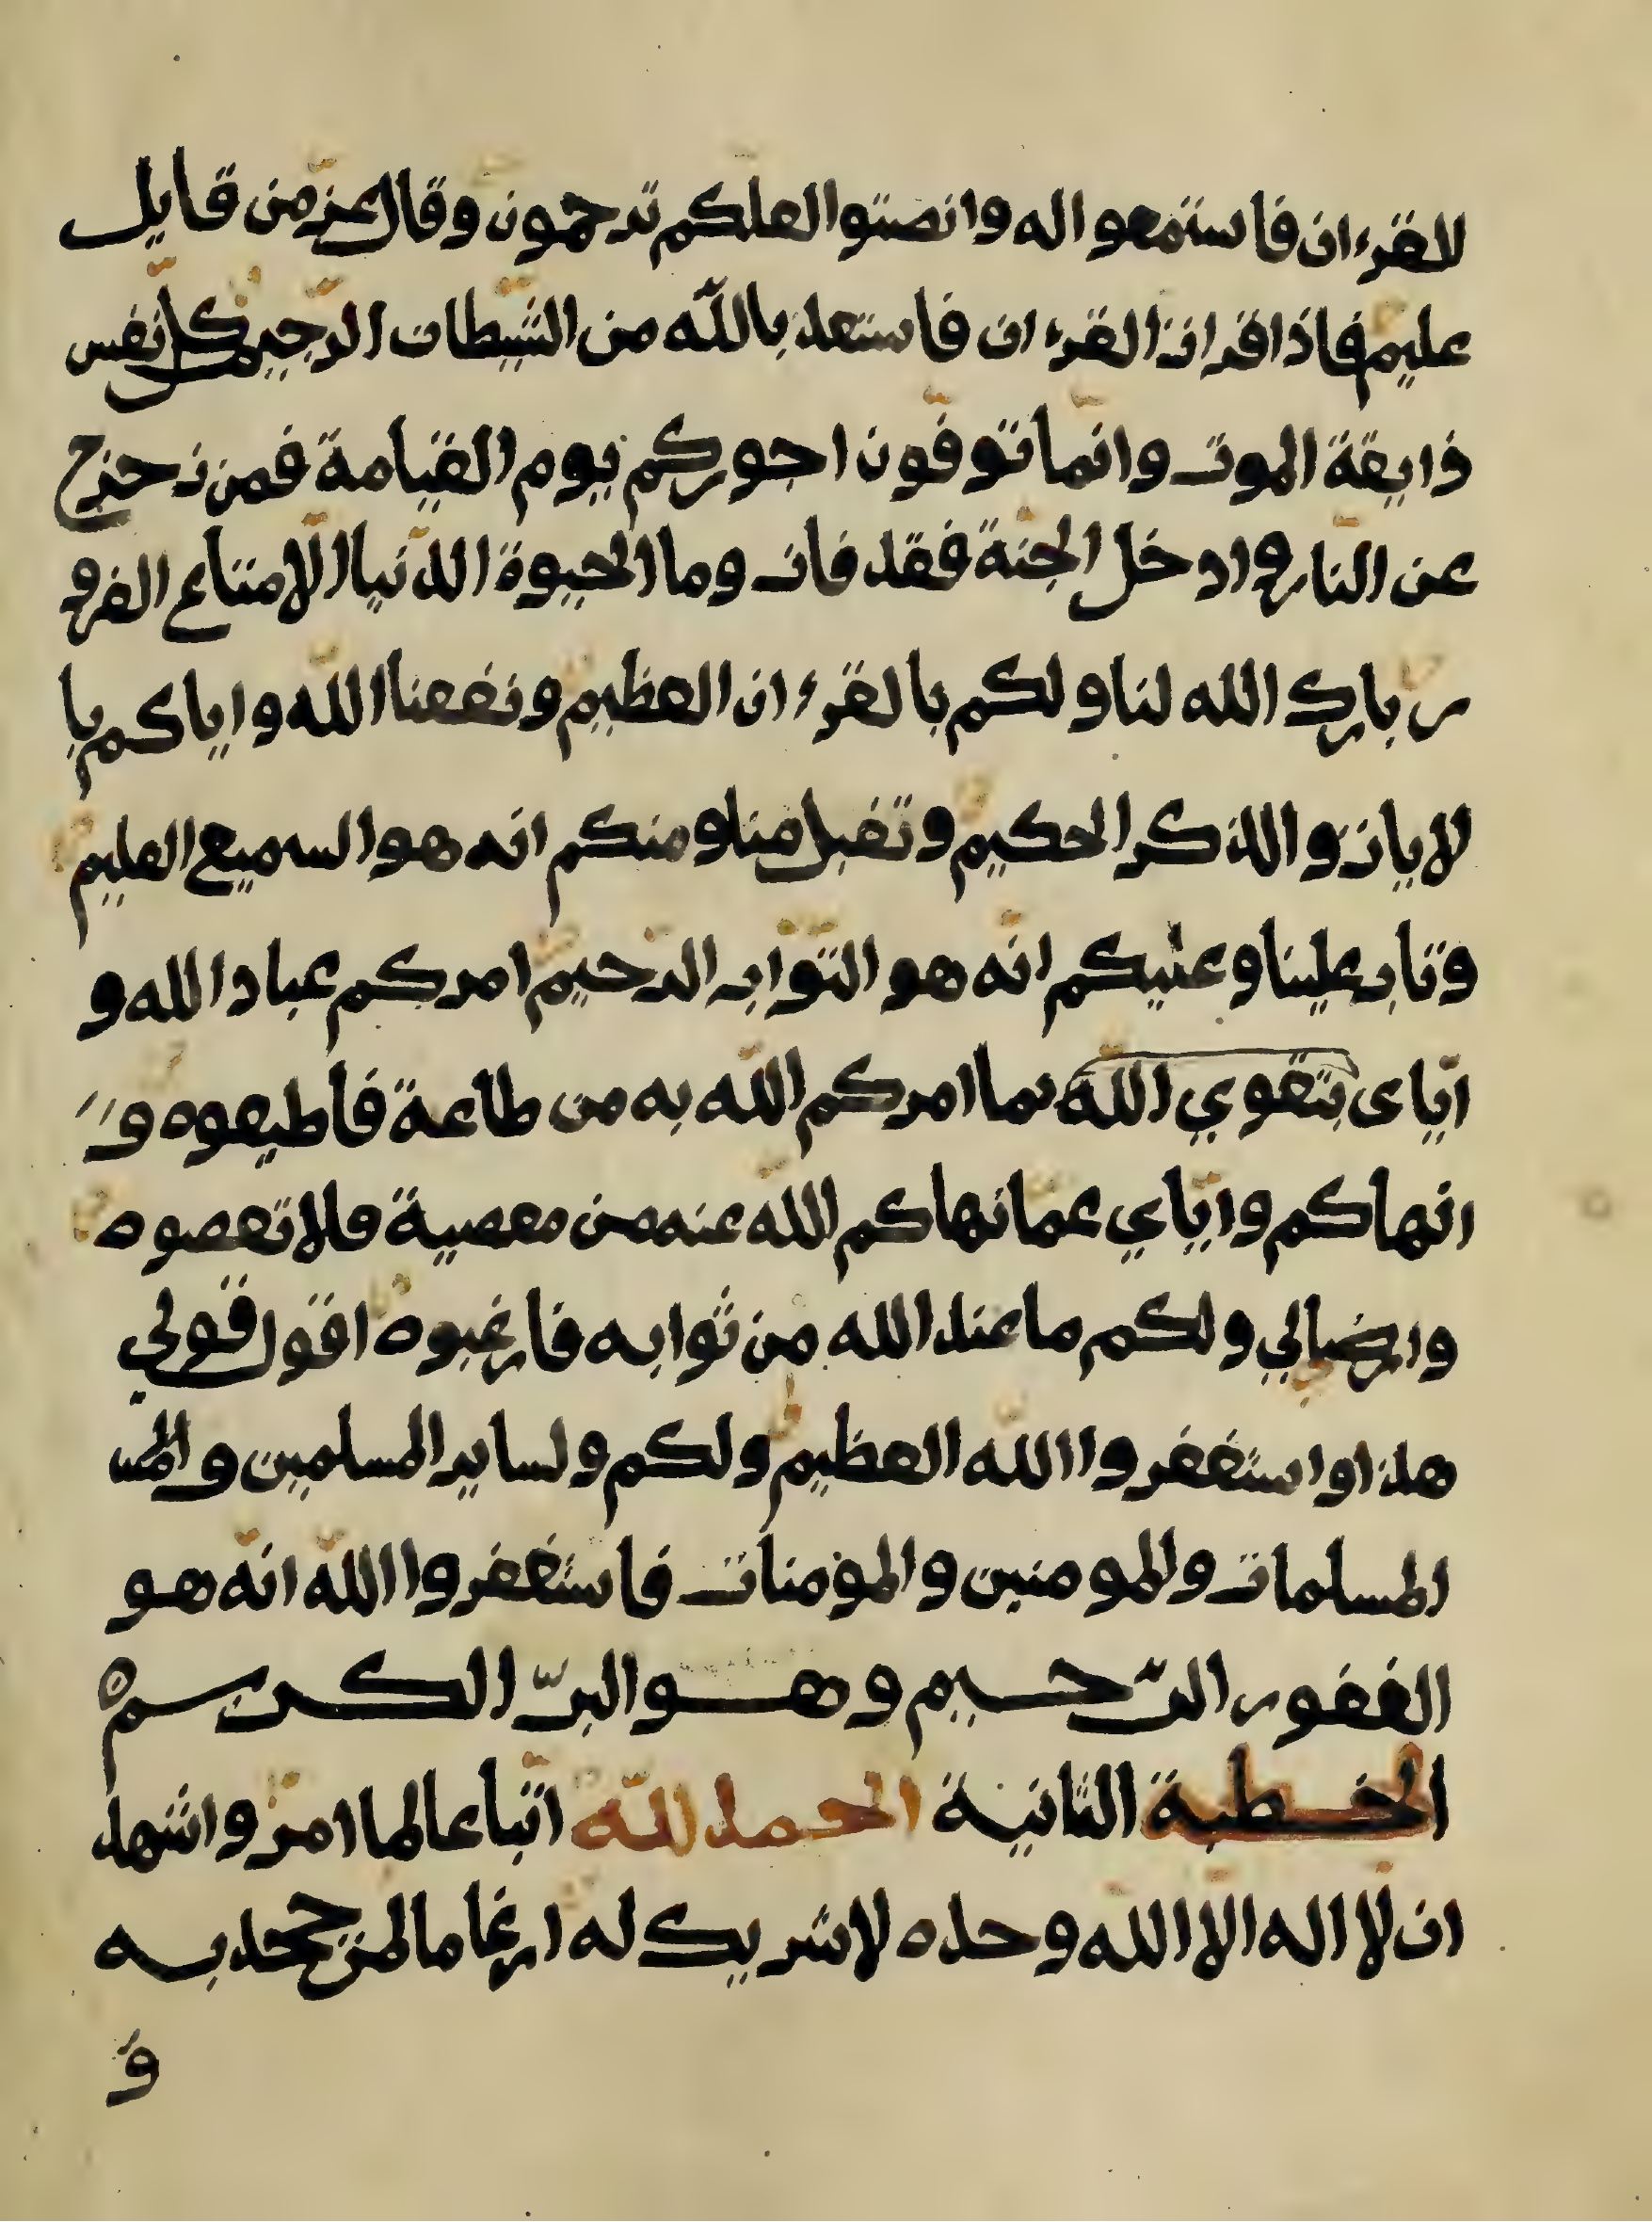 للقرءان فاستمعوا له وانصتوا لعلكم ترحمون وقال عز من قايل
عليم فاذا قرات القرءان فاستعذ بالله من الشيطان الرجيم كل نفس
ذايقة الموت وانّما توفّون اجوركم يوم القيامة فمن زحزح
عن النّار وادخل الجنّة فقد فاز وما الحيوة الدّنيا الّا متاع الغرو
ر بارك الله لنا ولكم بالقرءان العظيم ونفعنا اللّه واياكم با
لايات والذكر الحكيم وتقبل منا ومنكم انه هو السميع العليم
وتاب علينا وعليكم انّه هو التّواب الرّحيم امركم عباد الله و
ايّاى بتقوي اللّه بما امركم اللّه به من طاعة فاطيعوه و
انهاكم وايّاي عمّا نهاكم اللّه عنه من معصية فلا تعصوه
وارضا لي ولكم ما عند الله من ثوابه فارغبوه اقول قولي
هذا واستغفروا اللّه العظيم ولكم ولساير المسلمين والمس
المسلمات والمومنين والمؤمنات فاستغفروا اللّه انّه هو
الغفور الرّحيم وهو البرّ الكريم
الخطبة الثانية الحمد للّه اتّباعا لما امر واشهد
ان لا اله الا اللّه وحده لا شريك له ارغاما لمن جحد به
و